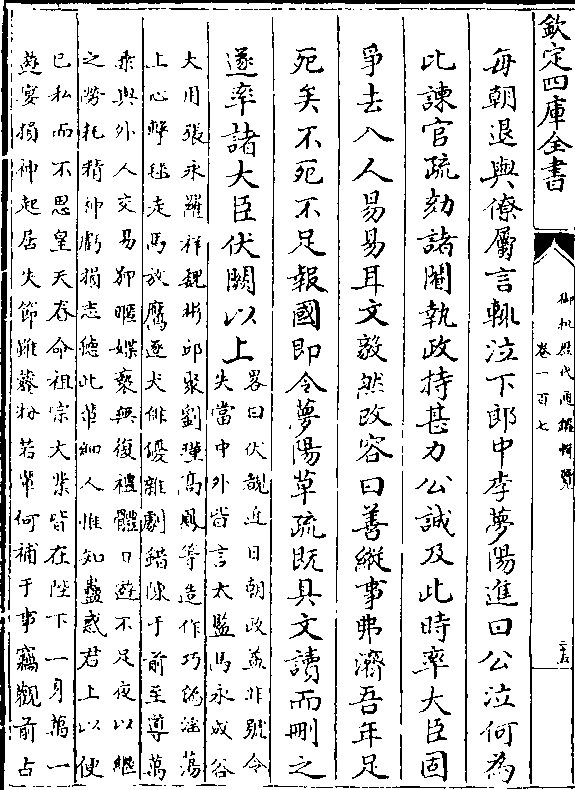 欽定四庫全書
御批歷代通鑑輯覽
卷一百七
二十五
每朝退與僚屬言輒泣下郎中李夢陽進曰公泣何為
比諫官疏劾諸閹執政持甚力公誠及此時率大臣固
爭去八人易易耳文毅然改容曰善縱事弗濟吾年足
死矣不死不足報國即令夢陽草疏既具文讀而刪之
遂率諸大臣伏闕以上
畧曰伏覩近日朝政益非號令
失當中外皆言太監馬永成谷
大用張永羅祥魏彬邱聚劉瑾高鳳等造作巧偽淫蕩
上心擊毬走馬放鷹逐犬俳優雜劇錯陳于前至導萬
乘與外人交易狎暱媟褻無復禮體日遊不足夜以繼
之勞耗精神虧損志德此輩細人惟知蠱惑君上以便
已私而不思皇天眷命祖宗大業皆在陛下一身萬一
遊宴損神起居失節雖虀粉若輩何補于事竊觀前古